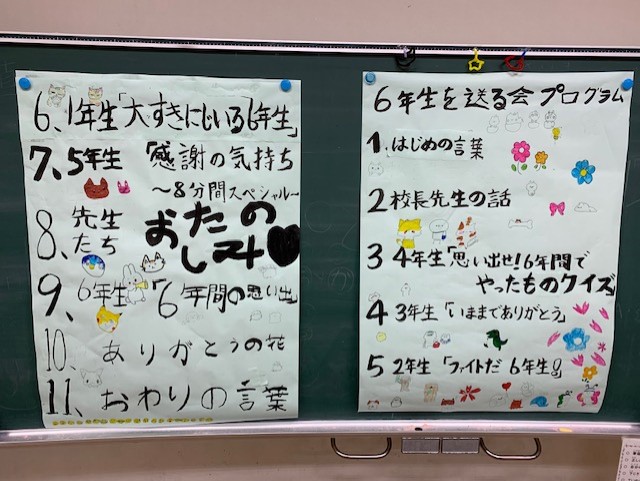 6年生を送る会プログラム
1.はじめの言葉
2 校長先生の話
3 4年生「思い出せ!6年間で
やったものクイズ」
4 3年生「いままでありがとう」
5 2年生「ファイトだ 6年生!!」
6、1年生「大すきにじいろ6年生」
7、5年生「感謝の気持ち
〜8分間スペシャル〜
8、先生たち おたのしみ♥
9、6年生「6年間の思い出」
10、ありがとうの花
11、おわりの言葉